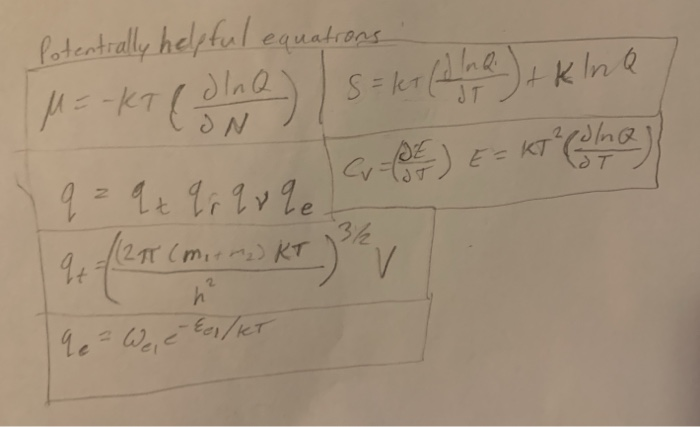 Potentially helpful equations:
μ = -kT (∂lnQ/∂N)
S = kT (∂lnQ/∂T) + k ln Q
Cv = (∂E/∂T) E = kT² (∂lnQ/∂T)
q = qt qr qv qe
qt = ((2π (m1+m2) kT)/h²)^3/2 V
qe = ωe1 e^-εe1/kT